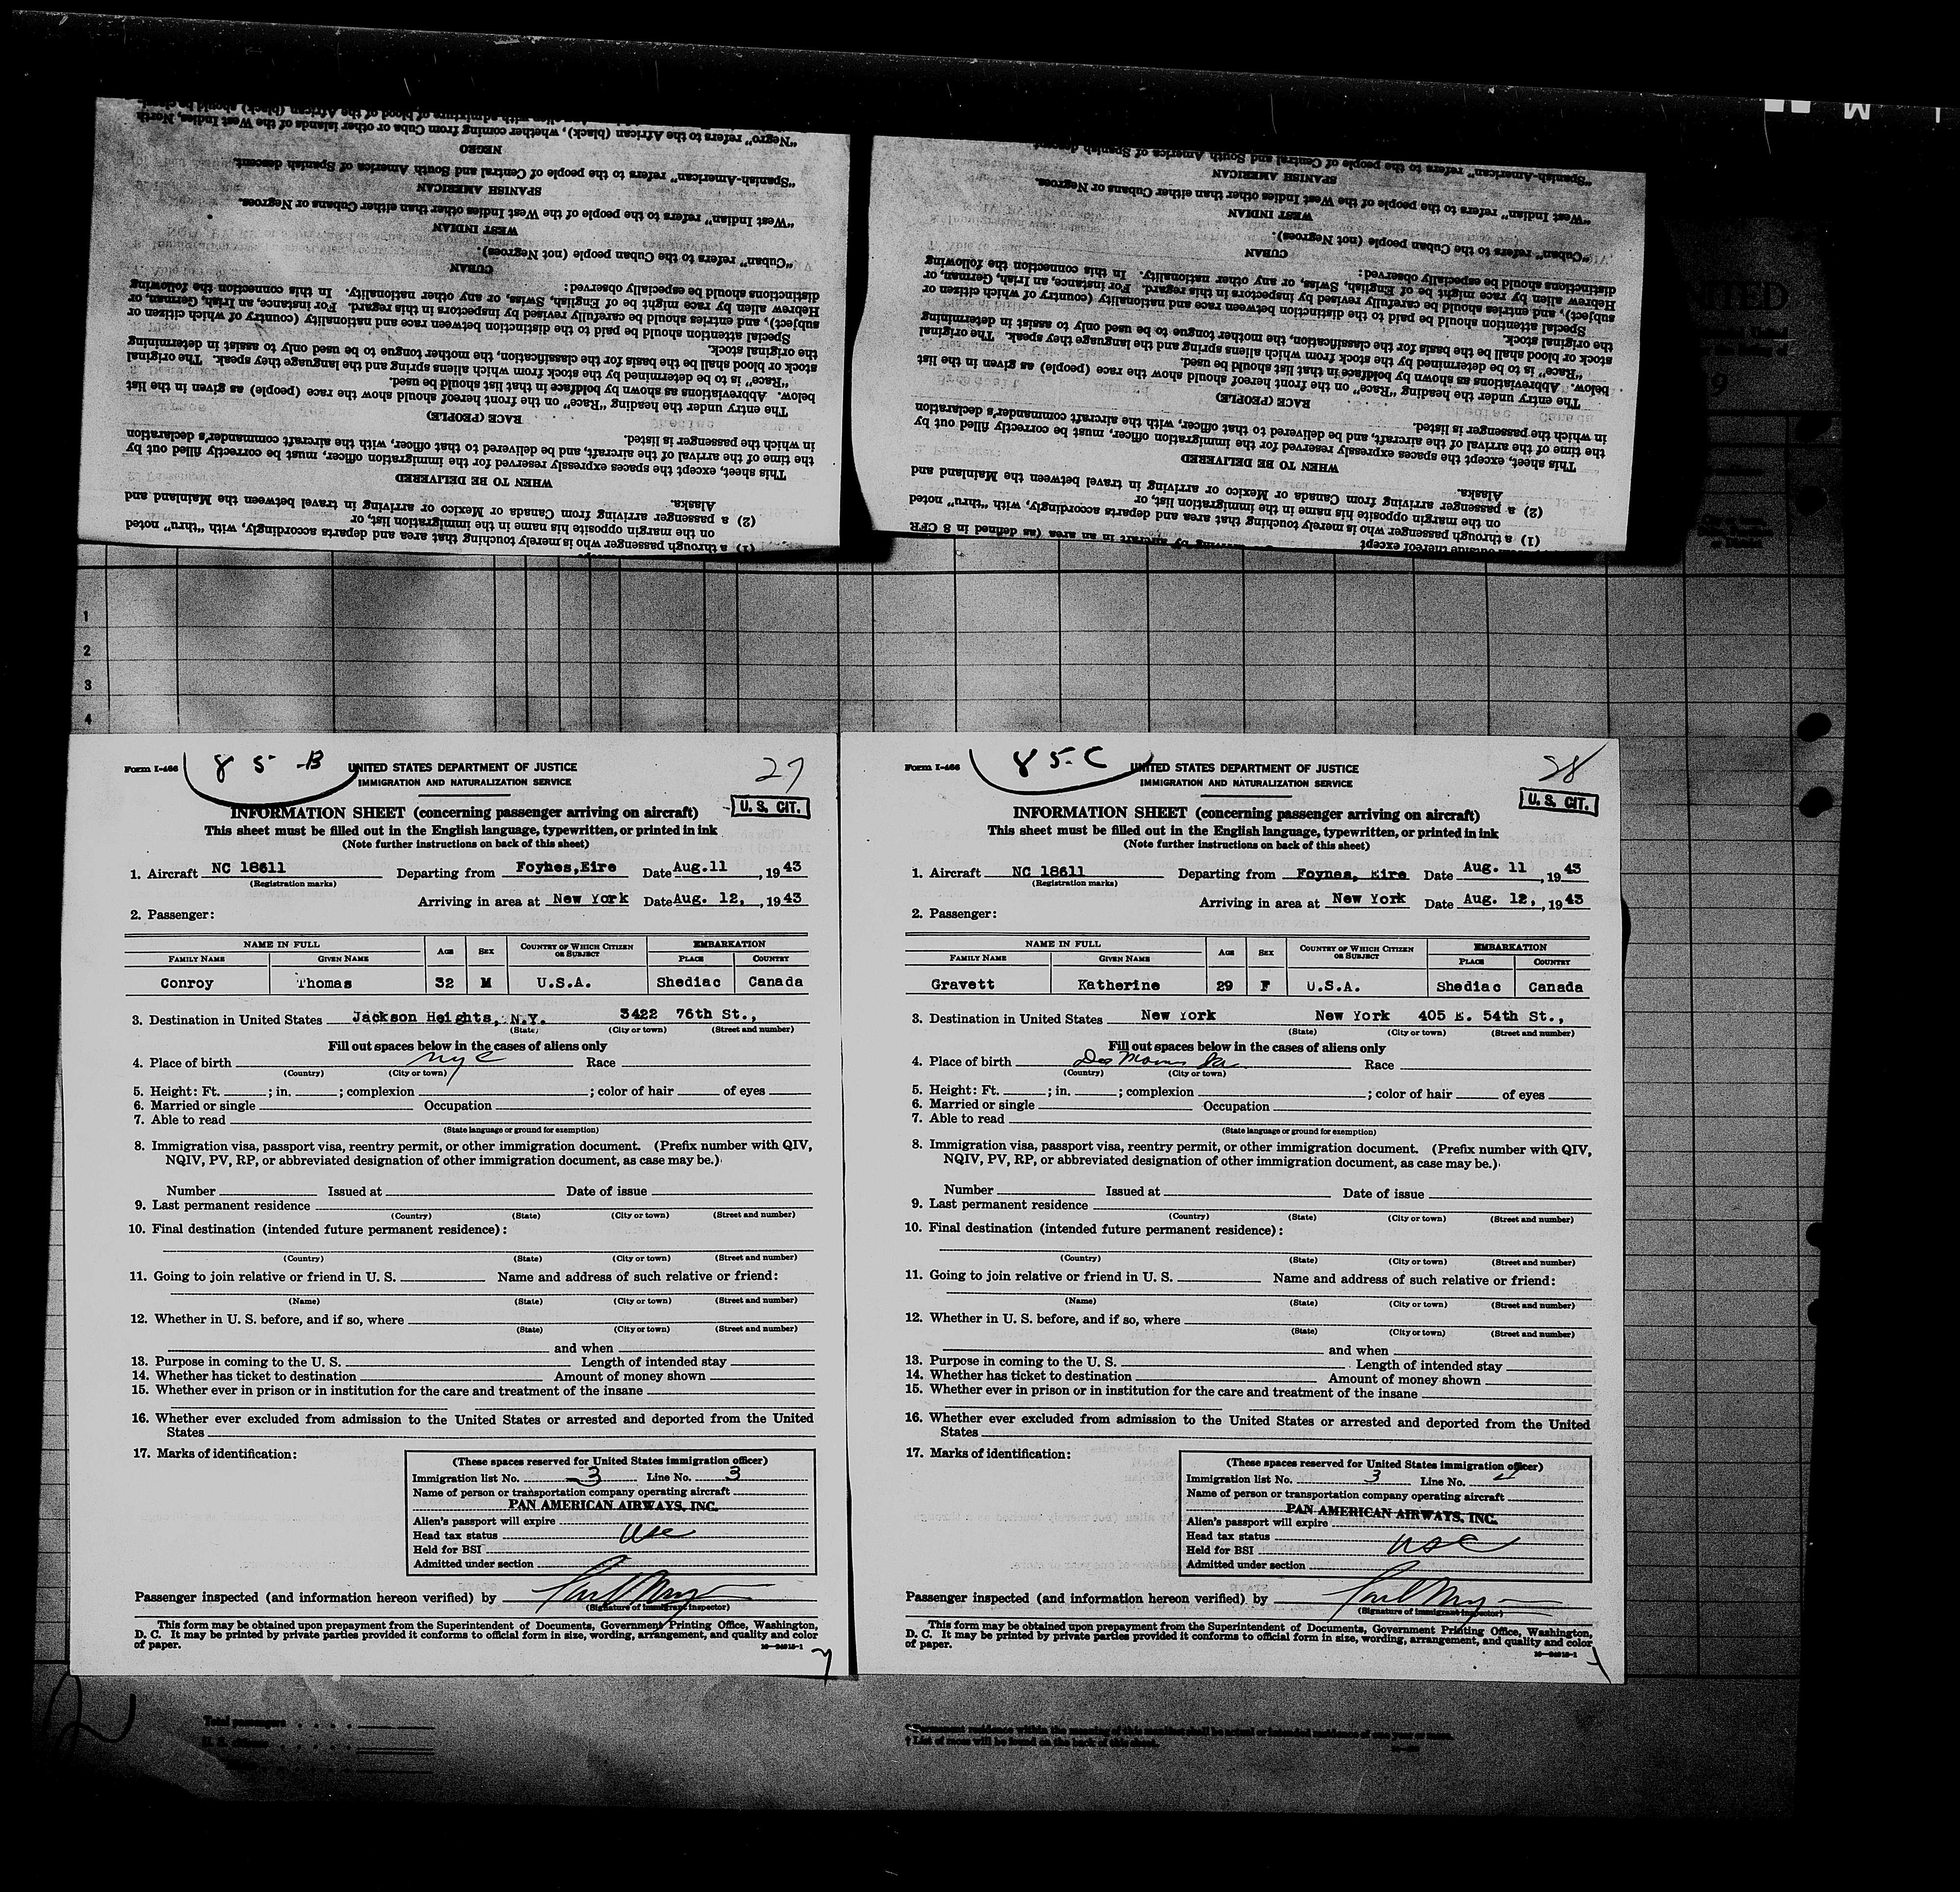 "Negro" refers to the African (black), whether coming from Cuba or other islands of the West Indies, North
NEGRO
"Spanish-American" refers to the people of Central and South America of Spanish descent.
SPANISH AMERICAN
"West Indian" refers to the people of the West Indies other than either Cubans or Negroes.
WEST INDIAN
"Cuban" refers to the Cuban people (not Negroes).
CUBAN
distinctions should be especially observed:
Hebrew alien by race might be of English, Swiss, or any other nationality. In this connection the following
subject), and entries should be carefully revised by inspectors in this regard. For instance, an Irish, German, or
Special attention should be paid to the distinction between race and nationality (country of which citizen or
the original stock.
stock or blood shall be the basis for the classification, the mother tongue to be used only to assist in determining
"Race" is to be determined by the stock from which aliens spring and the language they speak. The original
below. Abbreviations as shown by boldface in that list should be used.
The entry under the heading "Race" on the front hereof should show the race (people) as given in the list
RACE (PEOPLE)
in which the passenger is listed.
the time of the arrival of the aircraft, and be delivered to that officer, with the aircraft commander's declaration
This sheet, except the spaces expressly reserved for the immigration officer, must be correctly filled out by
WHEN TO BE DELIVERED
Alaska.
(2) a passenger arriving from Canada or Mexico or arriving in travel between the Mainland and
on the margin opposite his name in the immigration list, or
(1) a through passenger who is merely touching that area and departs accordingly, with "thru" noted
"Spanish-American" refers to the people of Central and South America of Spanish descent
SPANISH AMERICAN
"West Indian" refers to the people of the West Indies other than either Cubans or Negroes.
WEST INDIAN
"Cuban" refers to the Cuban people (not Negroes).
CUBAN
distinctions should be especially observed:
Hebrew alien by race might be of English, Swiss, or any other nationality. In this connection the following
subject), and entries should be carefully revised by inspectors in this regard. For instance, an Irish, German, or
Special attention should be paid to the distinction between race and nationality (country of which citizen or
the original stock.
stock or blood shall be the basis for the classification, the mother tongue to be used only to assist in determining
"Race" is to be determined by the stock from which aliens spring and the language they speak. The original
below. Abbreviations as shown by boldface in that list should be used.
The entry under the heading "Race" on the front hereof should show the race (people) as given in the list
RACE (PEOPLE)
in which the passenger is listed.
the time of the arrival of the aircraft, and be delivered to that officer, with the aircraft commander's declaration
This sheet, except the spaces expressly reserved for the immigration officer, must be correctly filled out by
WHEN TO BE DELIVERED
Alaska.
(2) a passenger arriving from Canada or Mexico or arriving in travel between the Mainland and
on the margin opposite his name in the immigration list, or
(1) a through passenger who is merely touching that area and departs accordingly, with "thru" noted
by aircraft in an area (as defined in 8 CFR
thereof except
1
2
3
4
Form I-466
85-B
UNITED STATES DEPARTMENT OF JUSTICE
27
IMMIGRATION AND NATURALIZATION SERVICE
U. S. CIT.
INFORMATION SHEET (concerning passenger arriving on aircraft)
This sheet must be filled out in the English language, typewritten, or printed in ink
(Note further instructions on back of this sheet)
1. Aircraft NC 18611 Departing from Foynes, Eire Date Aug. 11, 1943
(Registration marks)
Arriving in area at New York Date Aug. 12, , 1943
2. Passenger:
NAME IN FULL AGE SEX COUNTRY OF WHICH CITIZEN OR SUBJECT EMBARKATION
FAMILY NAME GIVEN NAME PLACE COUNTRY
Conroy Thomas 32 M U.S.A. Shediac Canada
3. Destination in United States Jackson Heights, N.Y. 3422 76th St.,
(State) (City or town) (Street and number)
Fill out spaces below in the cases of aliens only
4. Place of birth NYC Race
(Country) (City or town)
5. Height: Ft. ; in. ; complexion ; color of hair of eyes
6. Married or single Occupation
7. Able to read
(State language or ground for exemption)
8. Immigration visa, passport visa, reentry permit, or other immigration document. (Prefix number with QIV,
NQIV, PV, RP, or abbreviated designation of other immigration document, as case may be.)
Number Issued at Date of issue
9. Last permanent residence
(Country) (State) (City or town) (Street and number)
10. Final destination (intended future permanent residence):
(Country) (State) (City or town) (Street and number)
11. Going to join relative or friend in U. S. Name and address of such relative or friend:
(Name) (State) (City or town) (Street and number)
12. Whether in U. S. before, and if so, where
(State) (City or town) (Street and number)
and when
13. Purpose in coming to the U. S. Length of intended stay
14. Whether has ticket to destination Amount of money shown
15. Whether ever in prison or in institution for the care and treatment of the insane
16. Whether ever excluded from admission to the United States or arrested and deported from the United
States
17. Marks of identification:
(These spaces reserved for United States immigration officer)
Immigration list No. 3 Line No. 3
Name of person or transportation company operating aircraft
PAN AMERICAN AIRWAYS, INC.
Alien's passport will expire
Head tax status USC
Held for BSI
Admitted under section
Passenger inspected (and information hereon verified) by
(Signature of immigrant inspector)
This form may be obtained upon prepayment from the Superintendent of Documents, Government Printing Office, Washington,
D. C. It may be printed by private parties provided it conforms to official form in size, wording, arrangement, and quality and color
of paper.
Form I-466
85-C
UNITED STATES DEPARTMENT OF JUSTICE
28
IMMIGRATION AND NATURALIZATION SERVICE
U. S. CIT.
INFORMATION SHEET (concerning passenger arriving on aircraft)
This sheet must be filled out in the English language, typewritten, or printed in ink
(Note further instructions on back of this sheet)
1. Aircraft NC 18611 Departing from Foynes, Eire Date Aug. 11 , 1943
(Registration marks)
Arriving in area at New York Date Aug. 12, , 1943
2. Passenger:
NAME IN FULL AGE SEX COUNTRY OF WHICH CITIZEN OR SUBJECT EMBARKATION
FAMILY NAME GIVEN NAME PLACE COUNTRY
Gravett Katherine 29 F U.S.A. Shediac Canada
3. Destination in United States New York New York 405 E. 54th St.,
(State) (City or town) (Street and number)
Fill out spaces below in the cases of aliens only
4. Place of birth Des Moines Ia Race
(Country) (City or town)
5. Height: Ft. ; in. ; complexion ; color of hair of eyes
6. Married or single Occupation
7. Able to read
(State language or ground for exemption)
8. Immigration visa, passport visa, reentry permit, or other immigration document. (Prefix number with QIV,
NQIV, PV, RP, or abbreviated designation of other immigration document, as case may be.)
Number Issued at Date of issue
9. Last permanent residence
(Country) (State) (City or town) (Street and number)
10. Final destination (intended future permanent residence):
(Country) (State) (City or town) (Street and number)
11. Going to join relative or friend in U. S. Name and address of such relative or friend:
(Name) (State) (City or town) (Street and number)
12. Whether in U. S. before, and if so, where
(State) (City or town) (Street and number)
and when
13. Purpose in coming to the U. S. Length of intended stay
14. Whether has ticket to destination Amount of money shown
15. Whether ever in prison or in institution for the care and treatment of the insane
16. Whether ever excluded from admission to the United States or arrested and deported from the United
States
17. Marks of identification:
(These spaces reserved for United States immigration officer)
Immigration list No. 3 Line No. 4
Name of person or transportation company operating aircraft
PAN AMERICAN AIRWAYS, INC.
Alien's passport will expire
Head tax status
Held for BSI USC
Admitted under section
Passenger inspected (and information hereon verified) by
(Signature of immigrant inspector)
This form may be obtained upon prepayment from the Superintendent of Documents, Government Printing Office, Washington,
D. C. It may be printed by private parties provided it conforms to official form in size, wording, arrangement, and quality and color
of paper.
2
Total passengers
* Permanent residence within the meaning of this manifest shall be actual or intended residence of one year or more.
† List of races will be found on the back of this sheet.